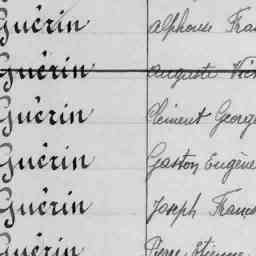 Guérin Alphonse Fran
Guérin Auguste
Guérin Clément Georg
Guérin Gaston Eugène
Guérin Joseph Franc
Guérin Pierre Etienne